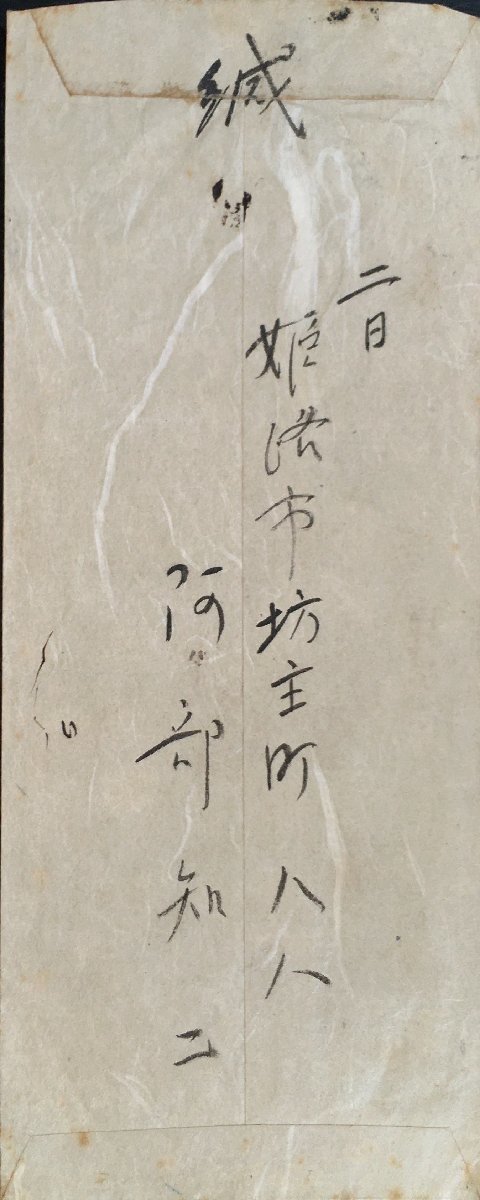 緘
二日
姫路市坊主町 八八
阿部知二